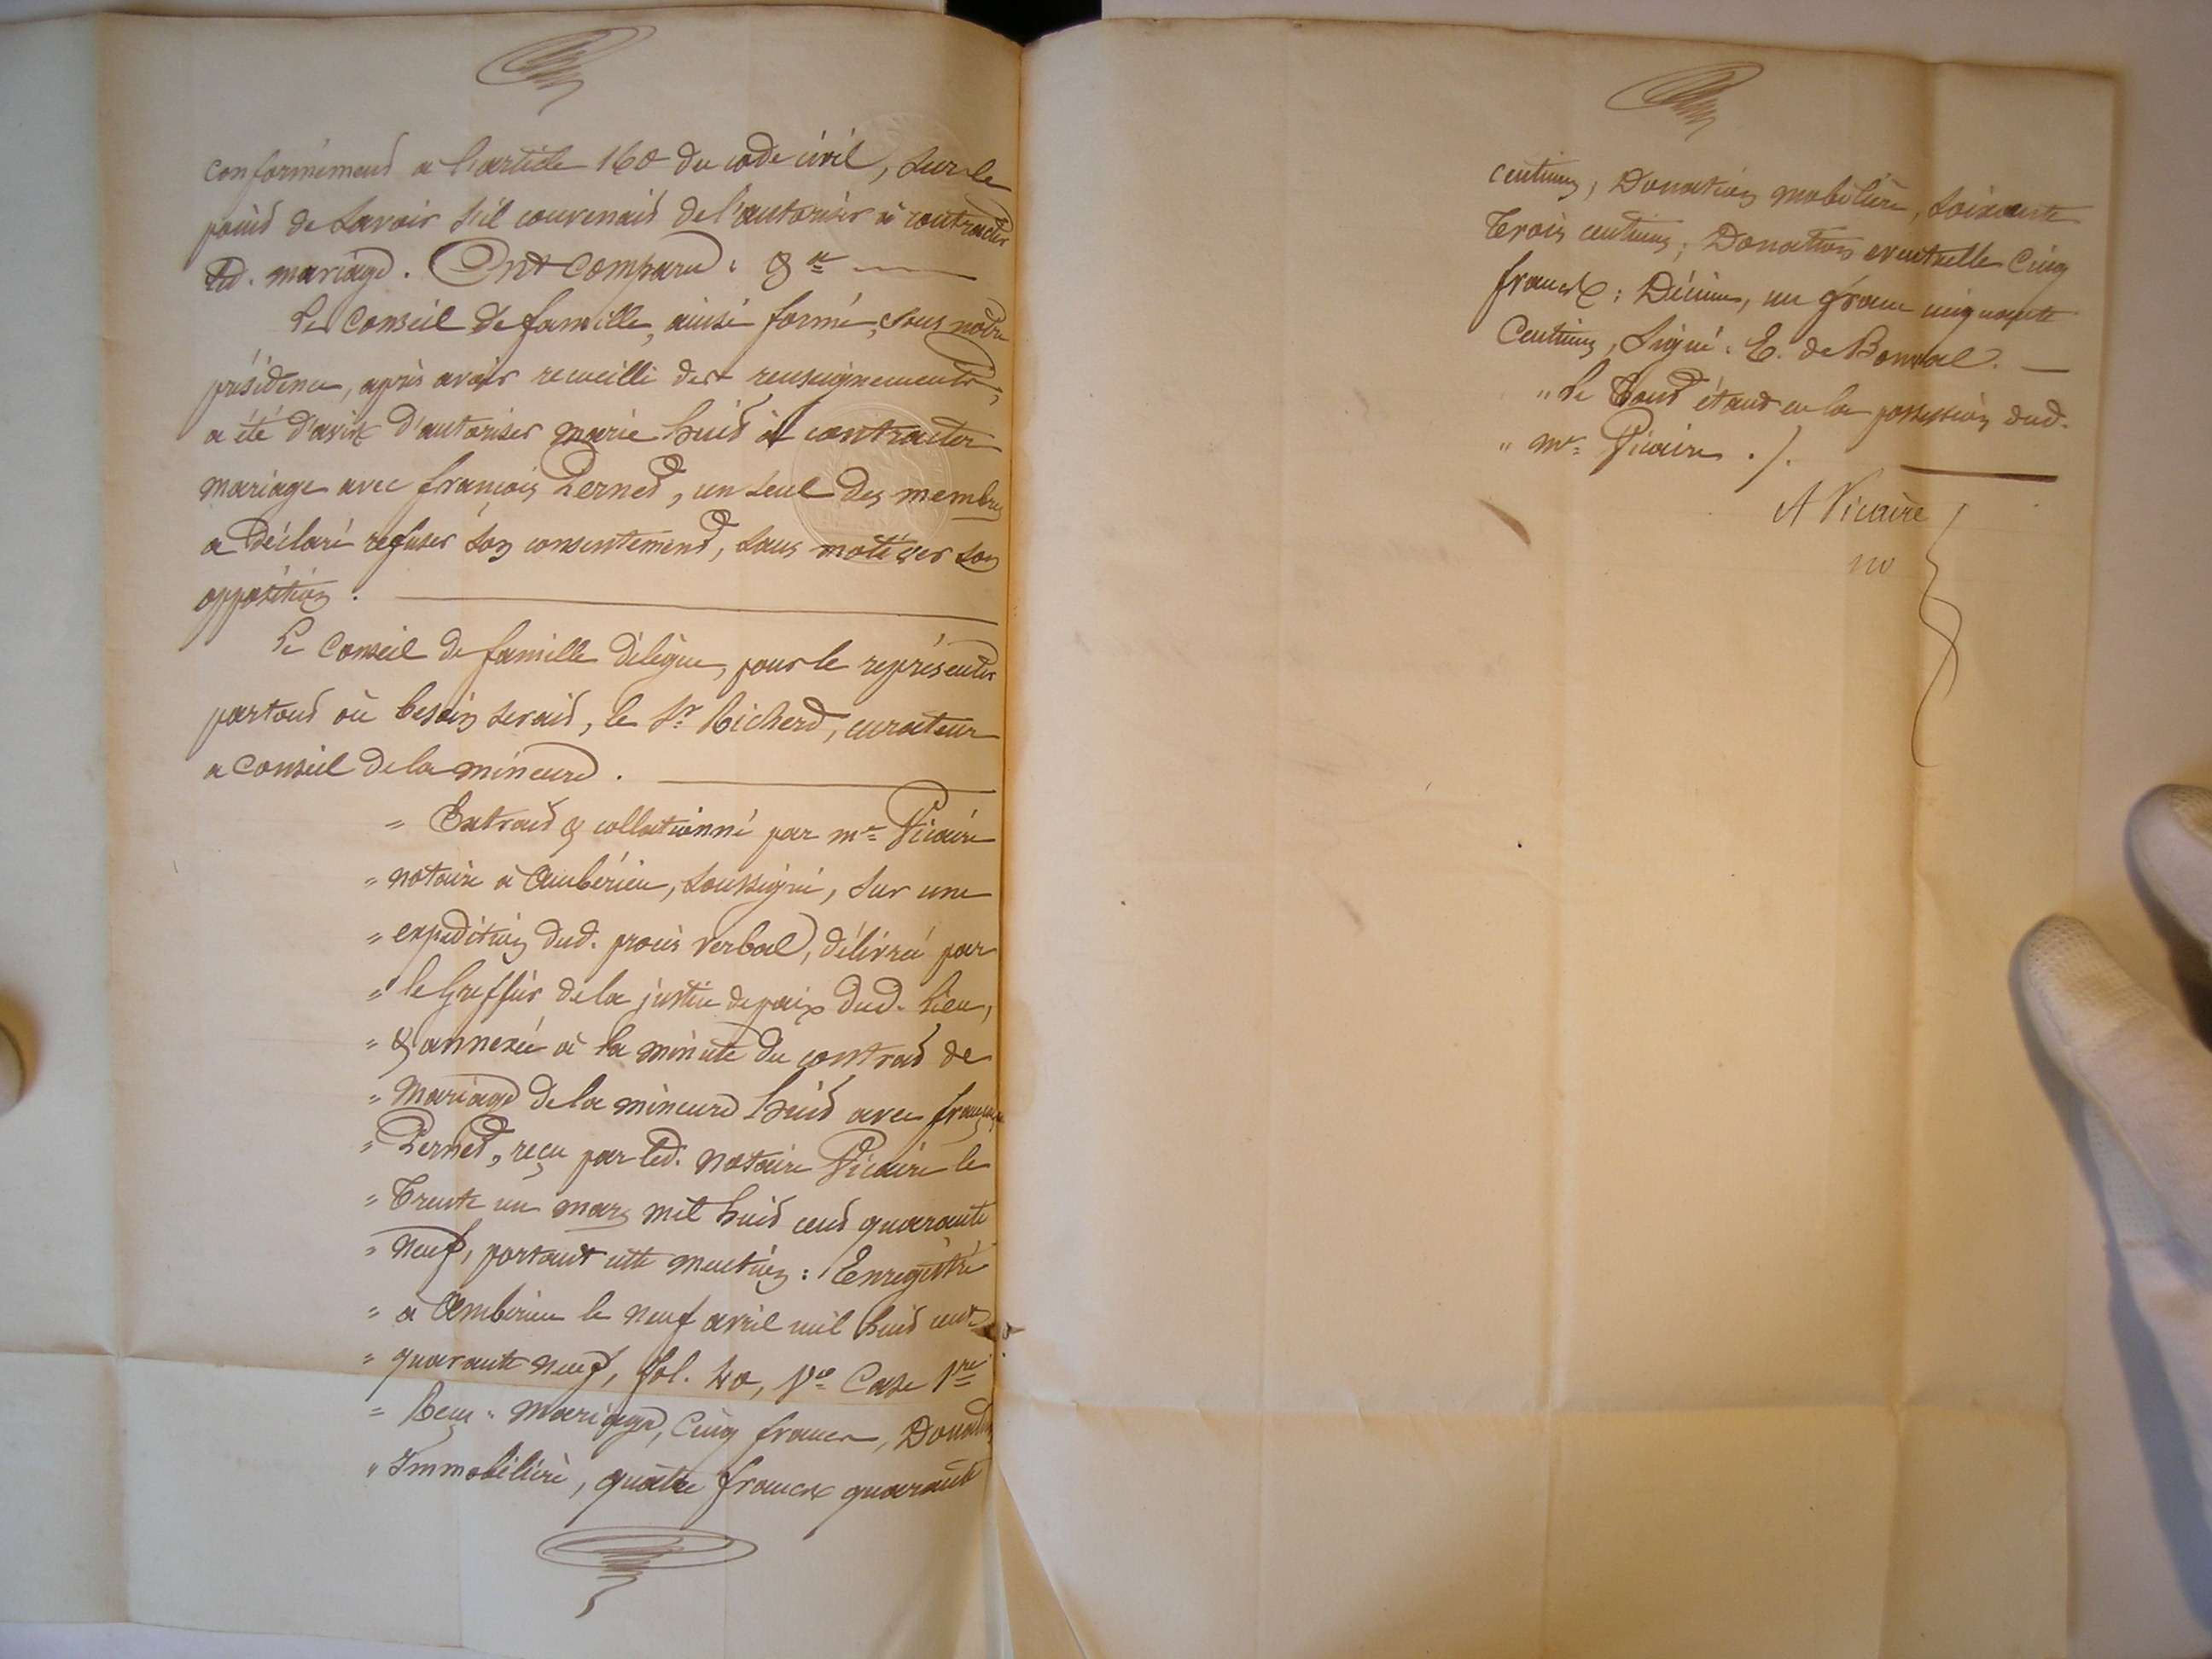 conformément a l'article 160 du code civil, sur le
point de savoir s'il convenait de l'autoriser à contracter
led. mariage. Ont comparu : &a
Le conseil de famille, ainsi formé, sous notre
présidence, après avoir recueilli des renseignements,
a été d'avis d'autoriser marie huit à contracter
mariage avec françois Pernet, un seul des membres
a déclaré refuser son consentement, sans motiver son
opposition.
Le conseil de famille délègue, pour le représenter
partout où besoin serait, le Sr Richerd, curateur
a conseil de la mineure.
" Extrait & collationné par me Vicaire
" notaire à Ambérieu, soussigné, sur une
" expedition dud. procès verbal, délivrée par
" le Greffier de la justice de paix dud. lieu,
" & annexée à la minute du contrat de
" mariage de la mineure huit avec françois
" Pernet, reçu par led. notaire Vicaire le
" Trente un mars mil huit cent quarante
" neuf, portant cette mention : Enregistré
" a Ambérieu le neuf avril mil huit cent
" quarante neuf, fol. 40, Vo Case 1re
" Reçu : mariage, Cinq francs, Donation
" Immobilière, quatre francs quarante
centimes, Donation mobilière, soixante
Trois centimes ; Donation eventuelle Cinq
francs ; Décime, un franc cinquante
Centimes, Signé : E. de Bonnal.
" Le Tout étant en la possession dud.
" me Vicaire ./.
A Vicaire
no